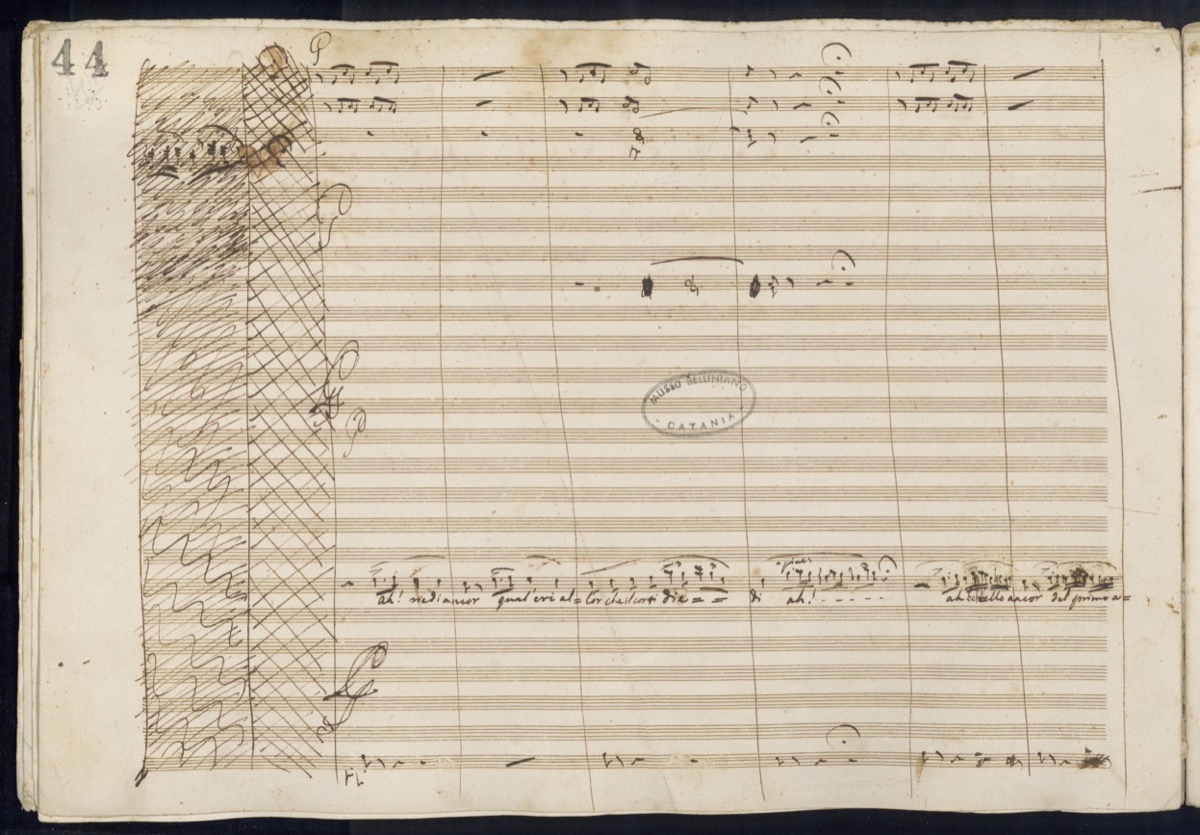 44
MUSEO BELLINIANO
- CATANIA -
ah! riedi ancor qual eri al= lor che il cor ti die = = di ah! - - - - - ah! bello ancor del primo a=